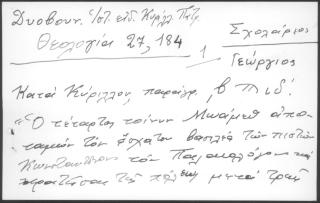 Δυοβουν. Ἱστ. εἰδ. Κυρίλλ. Πατρ.
Θεολογία 27, 184
1
Σχολάριος
Γεώργιος
Κατὰ Κυρίλλου, παράγρ. β
"Ὁ τέταρτος τοίνυν Μωάμεθ ἀπο-
ταμὼν τὸν ἔσχατον βασιλέα τῶν πιστῶν
Κωνσταντῖνον τὸν Παλαιολόγον καὶ
κρατήσας τῆς πόλεως μετὰ